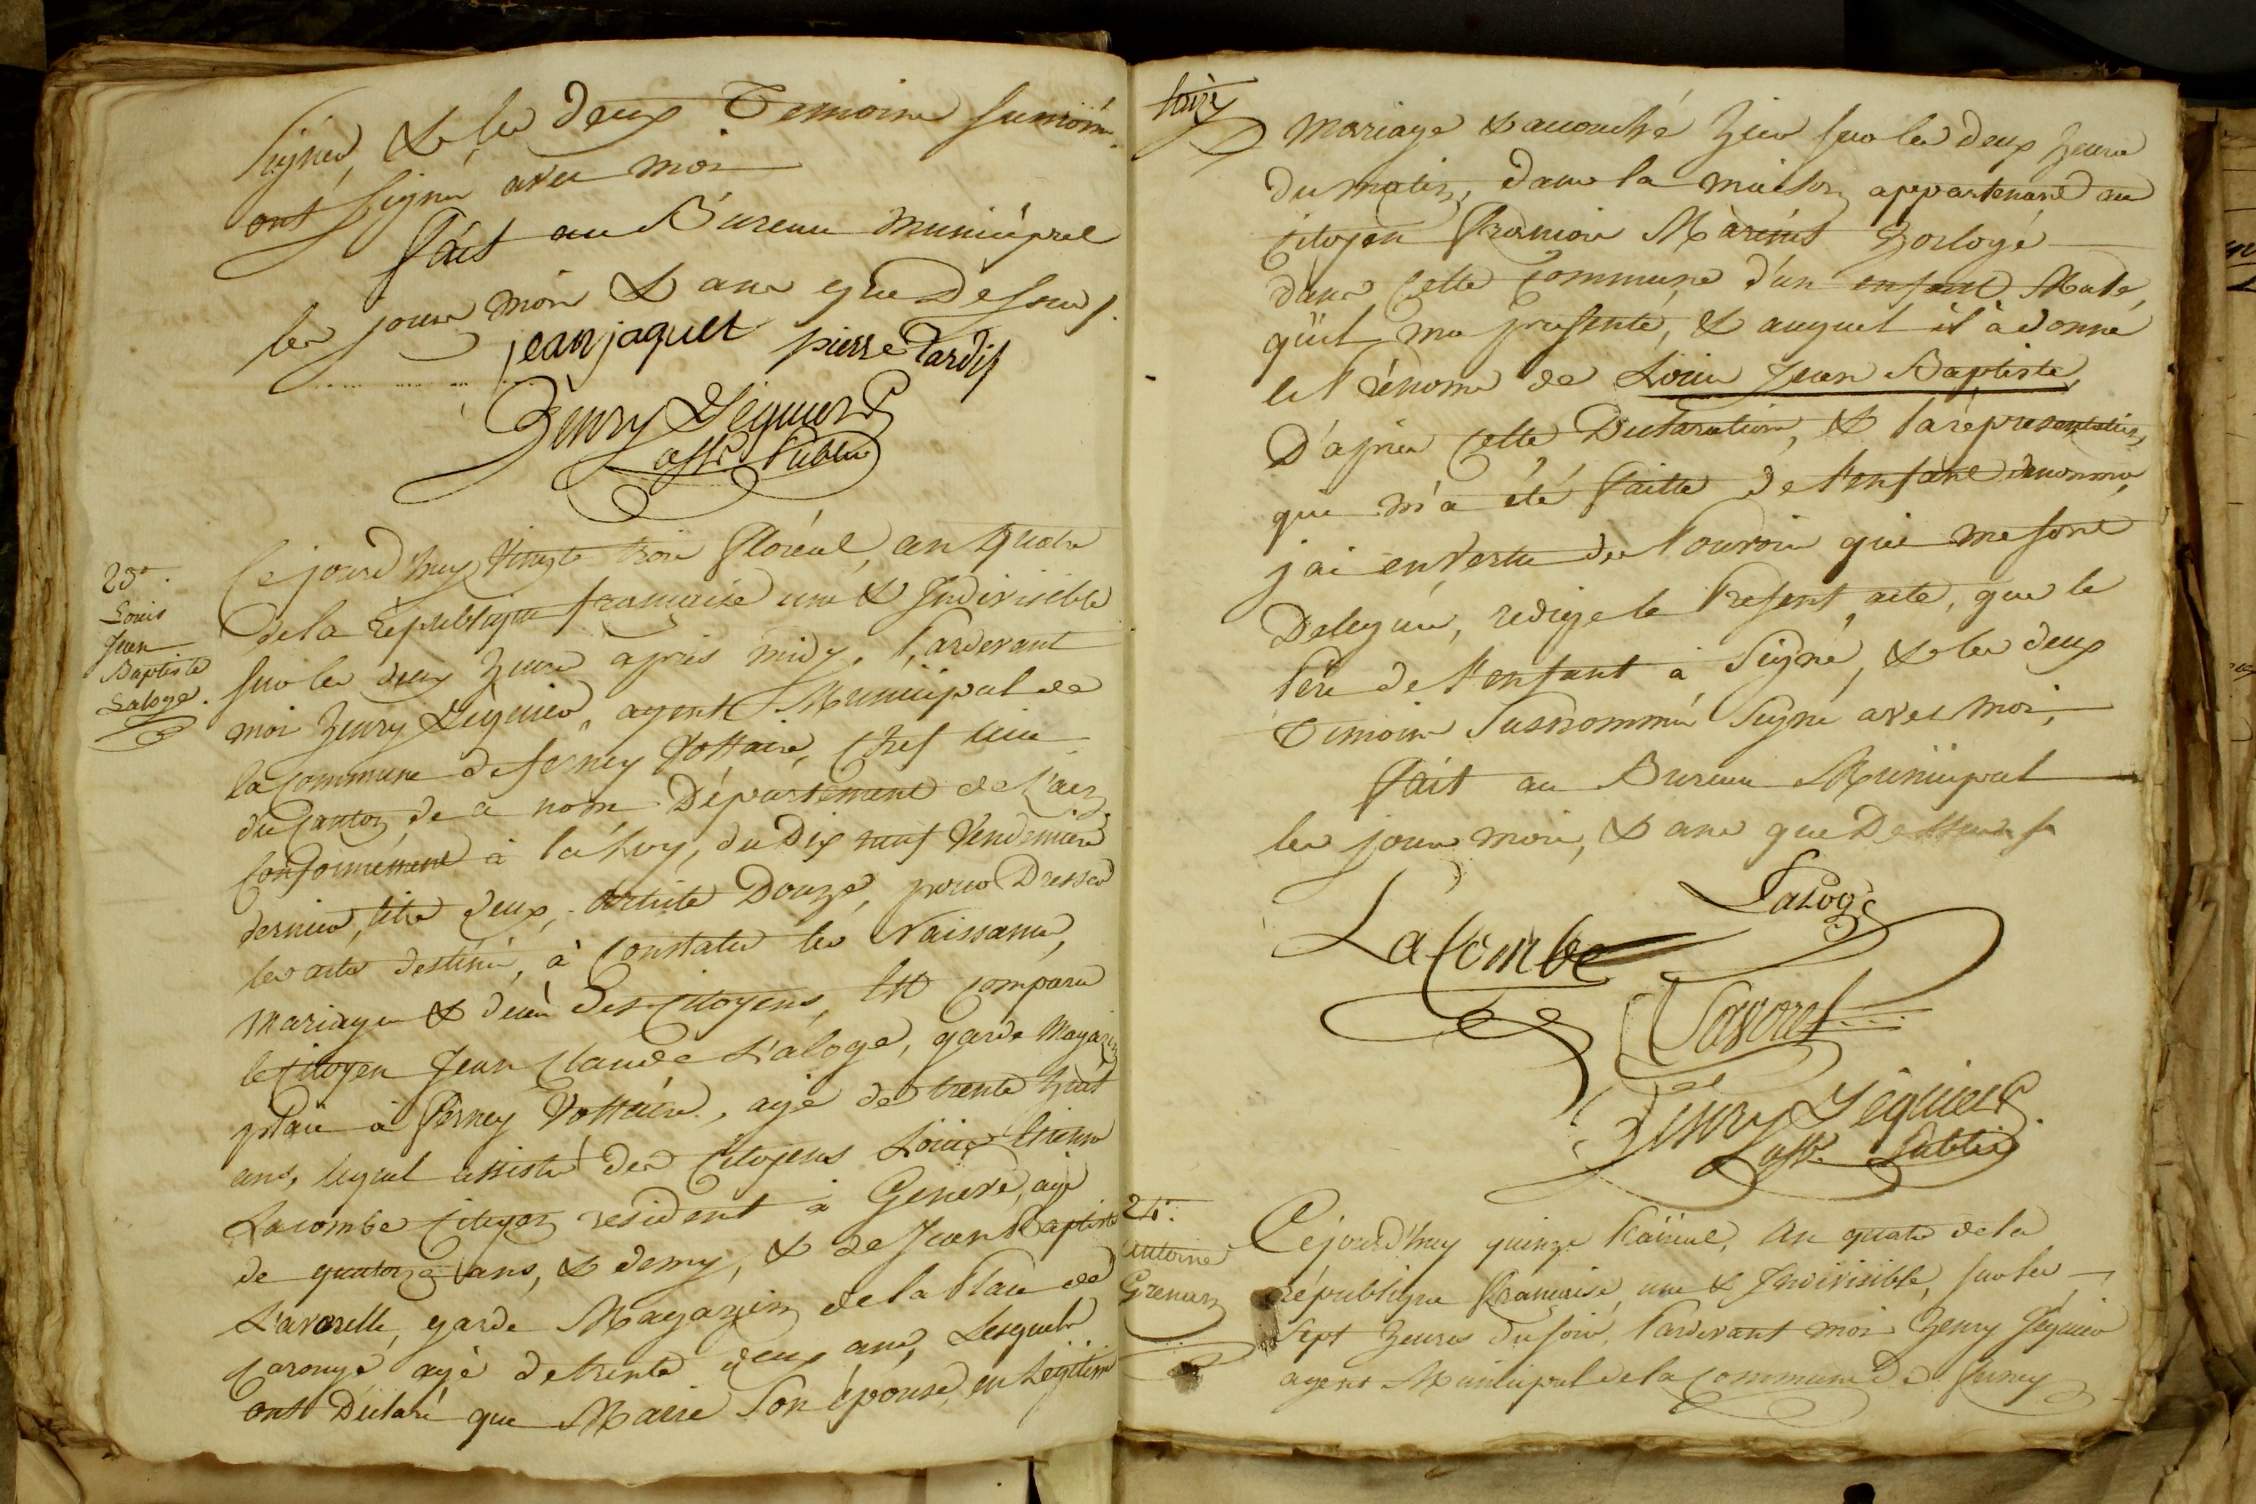 Signer, & les deux Temoins susnom.
ont signé avec moi
fait au Bureau Municipal
les jours mois & ans que Dessus /.
jean jaquet pierre Tardif
Henry Séguier
off. Public
23e.
Louis
Jean
Baptiste
Laloge.
Cejourd'huy Vingte trois floréal, an quatre
de la République francaise une & Indivisible
sur les deux heures après midy, Pardevant
moi henry Séguier, agent Municipal de
la Commune de ferney Voltaire, Chef lieu
du Canton de ce nom Département de L'ain,
Conformément à la Loy, du Dix neuf Vendemiaire
dernier, titre deux, Article Douze, pour Dresser
les actes destinés, à Constater les Naissances,
Mariages & décès des Citoyens, Est comparu
le Citoyen Jean Claude Laloge, garde Magazin
à Ferney Voltaire, agé de trente huit
ans, lequel assisté des Citoyens Louis Etienne
Lacombe Citoyen resident à Geneve, agé
de quatorze ans, & demy, & de Jean Baptiste
garde Magazin de la Place de
Carouge agé de trente deux ans, Lesquels
ont Déclaré que Marie Son épouse, en Légitime
Mariage & accouché hier sur les deux heures
du matin, dans la maison appartenant au
Citoyen francois horlogé
dans Cette Commune d'un enfant Male,
qu'il ma presenté, & auquel il à donné
les Prénoms de Louis Jean Baptiste,
D'après Cette Declaration, & la répresentation,
qui m'a été faitte de l'enfant denommé,
j'ai en Vertu des Pouvoirs qui me sont
Delegués, redigé le Present acte, que le
Père de l'enfant à Signé, & les deux
Temoins Susnommé Signé avec moi,
fait au Bureau Municipal
les jours mois, & ans que Dessus
Laloge
LaCombe
Henry Séguier
off. Public
24e.
Antoine
Grenier
Cejourd'huy quinze Prairial, An quatre de la
république francaise, une & Indivisible, sur les
Sept heures du soir, Pardevant moi Henry Séguier
agent Municipal de la Commune De ferney